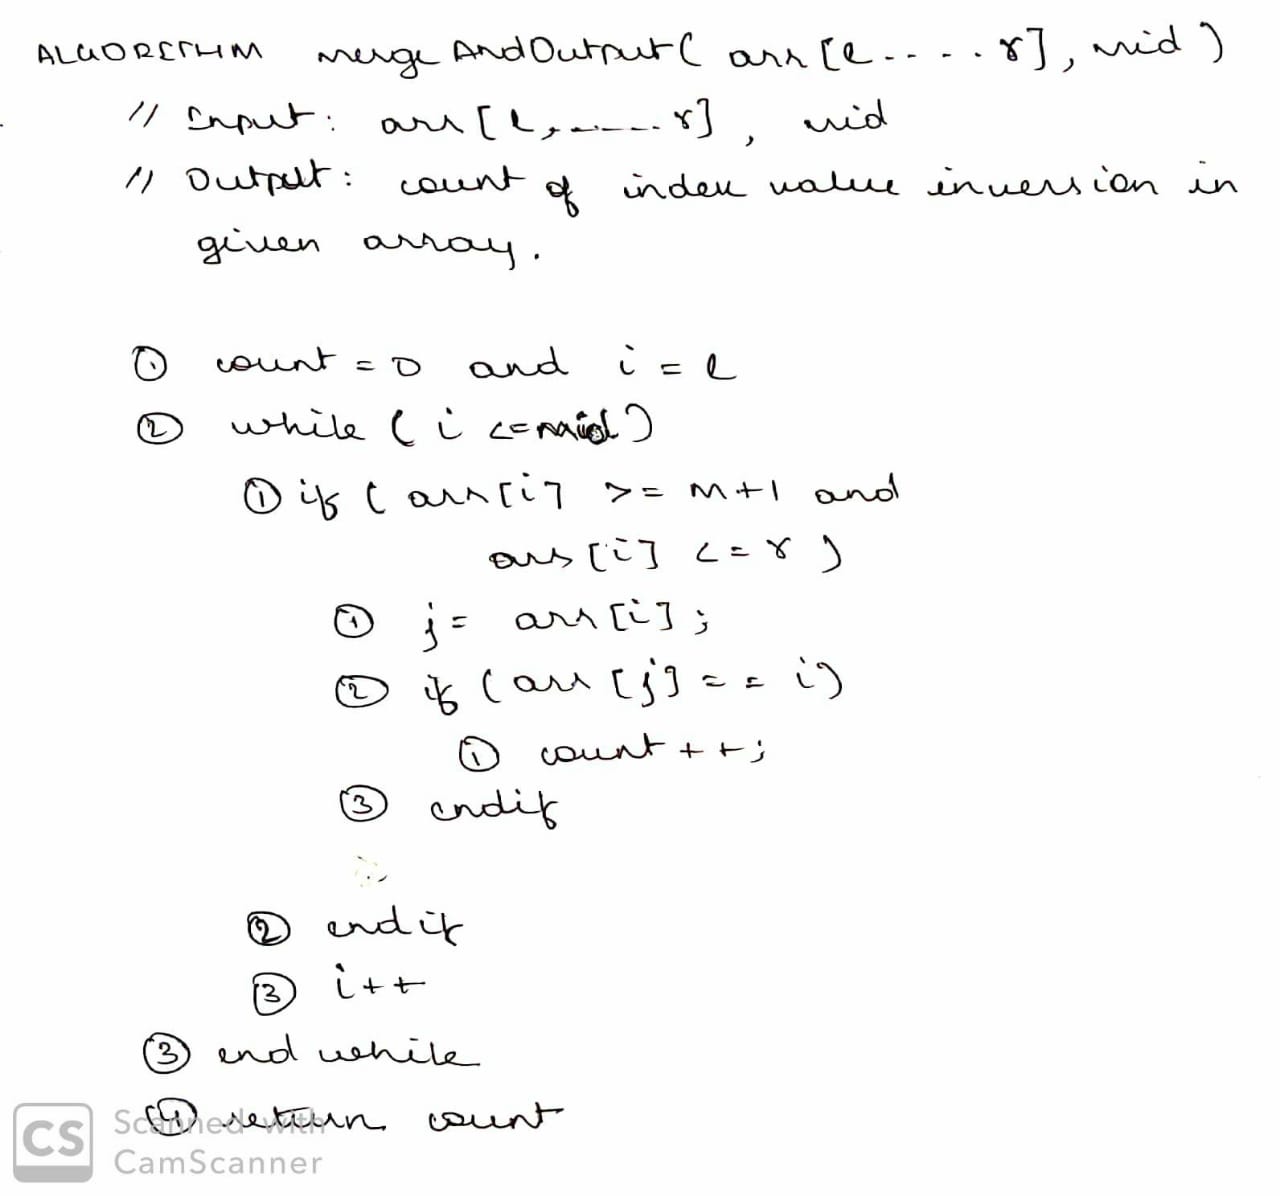 ALGORITHM mergeAndOutput( arr [l.....r], mid )
// Input: arr [l,.....r], mid
// Output: count of index value inversion in
given array.
① count = 0 and i = l
② while ( i <= mid )
① if ( arr[i] >= m+1 and
arr [i] <= r )
① j = arr [i];
② if ( arr [j] == i)
① count ++;
③ endif
② endif
③ i++
③ end while
④ return count
CS Scanned with
CamScanner